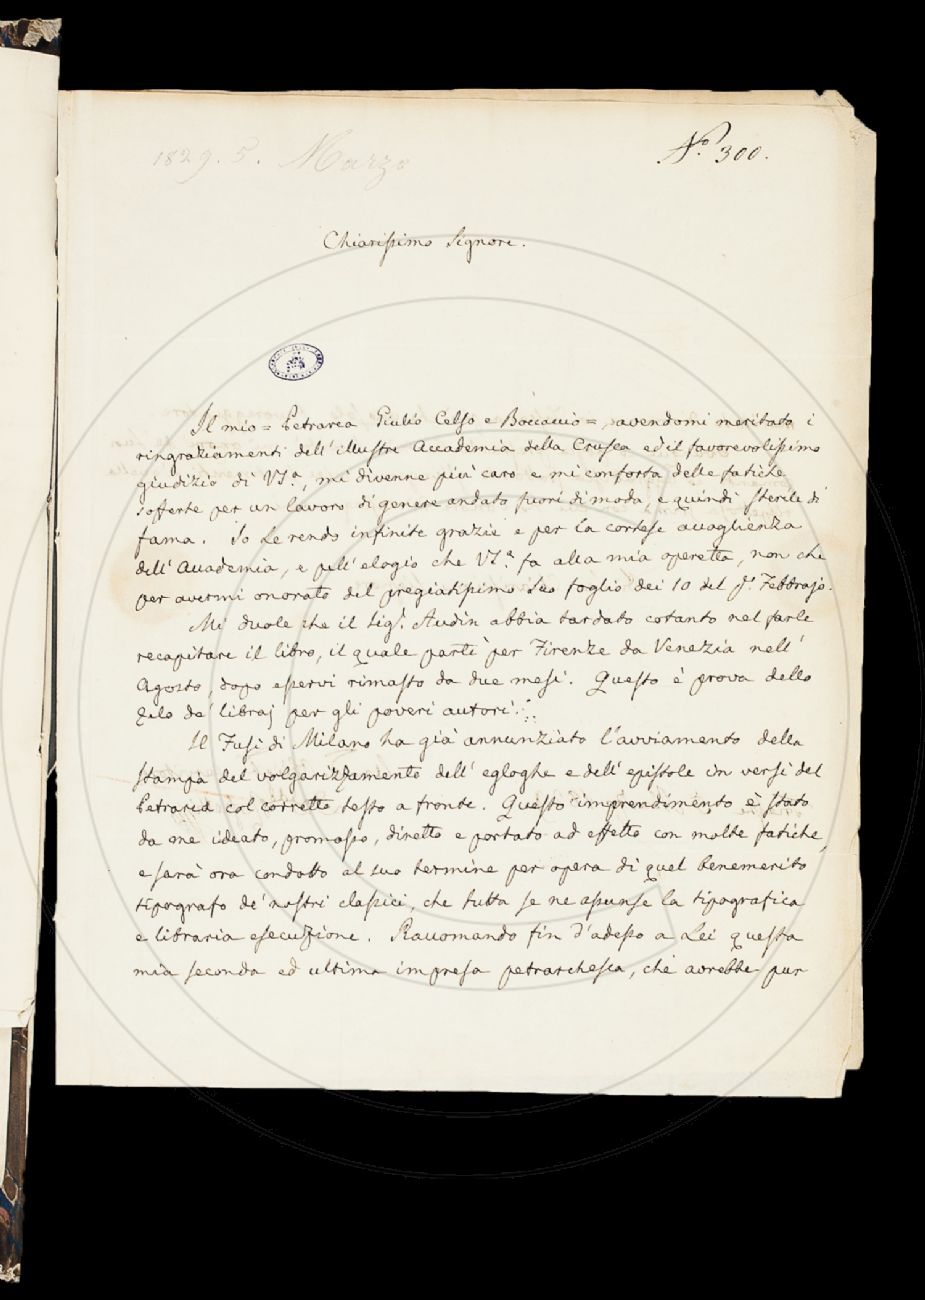 1829. 5. Marzo
N.º 300.
Chiarissimo Signore.
Il mio = Petrarca Giulio Celso e Boccaccio =, avendomi meritato i
ringraziamenti dell' illustre Accademia della Crusca ed il favorevolissimo
giudizio di VS.ª, mi divenne più caro e mi conforta delle fatiche
sofferte per un lavoro di genere andato fuori di moda e quindi sterile di
fama. Io Le rendo infinite grazie e per la cortese accoglienza
dell' Accademia, e pell' elogio che VS.ª fa alla mia operetta, non che
per avermi onorato del pregiatissimo Suo foglio dei 10 del p.º Febbrajo.
Mi duole che il Sig.r Audin abbia tardato cotanto nel farle
recapitare il libro, il quale partì per Firenze da Venezia nell'
Agosto, dopo esservi rimasto da due mesi. Questo è prova dello
zelo de' libraj per gli poveri autori!
Il Fusi di Milano ha già annunziato l'avviamento della
stampa del volgarizzamento dell' egloghe e dell' epistole in versi del
Petrarca col corretto testo a fronte. Questo imprendimento è stato
da me ideato, promosso, diretto e portato ad effetto con molte fatiche,
e sarà ora condotto al suo termine per opera di quel benemerito
tipografo de' nostri classici, che tutta se ne assunse la tipografica
e libraria esecuzione. Raccomando fin d'adesso a Lei questa
mia seconda ed ultima impresa petrarchesca, che avrebbe pur